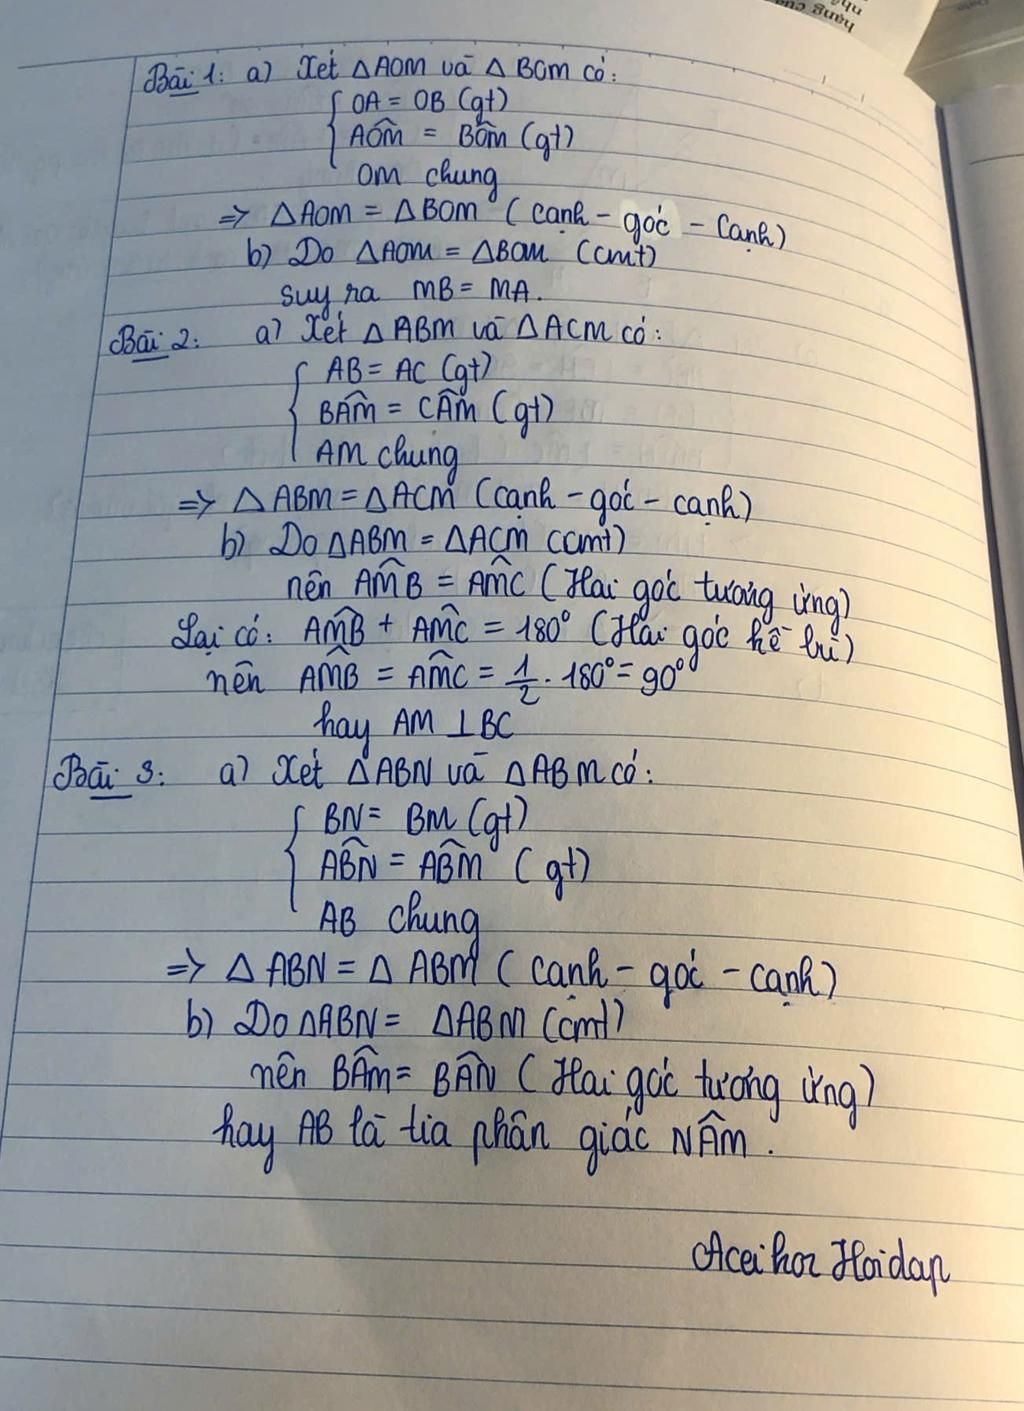 Bài 1: a) Xét △AOM và △BOM có:
OA = OB (gt)
AÔM = BÔM (gt)
OM chung
=> △AOM = △BOM (cạnh - góc - cạnh)
b) Do △AOM = △BOM (cmt)
suy ra MB = MA.
Bài 2: a) Xét △ABM và △ACM có:
AB = AC (gt)
BÂM = CÂM (gt)
AM chung
=> △ABM = △ACM (cạnh - góc - cạnh)
b) Do △ABM = △ACM (cmt)
nên AM̂B = AM̂C (Hai góc tương ứng)
Lại có: AM̂B + AM̂C = 180° (Hai góc kề bù)
nên AM̂B = AM̂C = 1/2 . 180° = 90°
hay AM ⊥ BC
Bài 3: a) Xét △ABN và △ABM có:
BN = BM (gt)
AB̂N = AB̂M (gt)
AB chung
=> △ABN = △ABM (cạnh - góc - cạnh)
b) Do △ABN = △ABM (cmt)
nên BÂM = BÂN (Hai góc tương ứng)
hay AB là tia phân giác NÂM.
Aceihor Hoidap